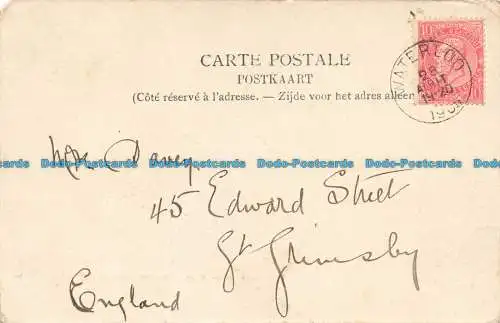 CARTE POSTALE
POSTKAART
(Côté réservé à l'adresse. — Zijde voor het adres alleen
10
WATERLOO
Davey
Dodo-Postcards Dodo-Postcards Dodo-Postcards Dodo-Postcards Dodo-Postcards
45 Edward Street
Gt Grimsby
England